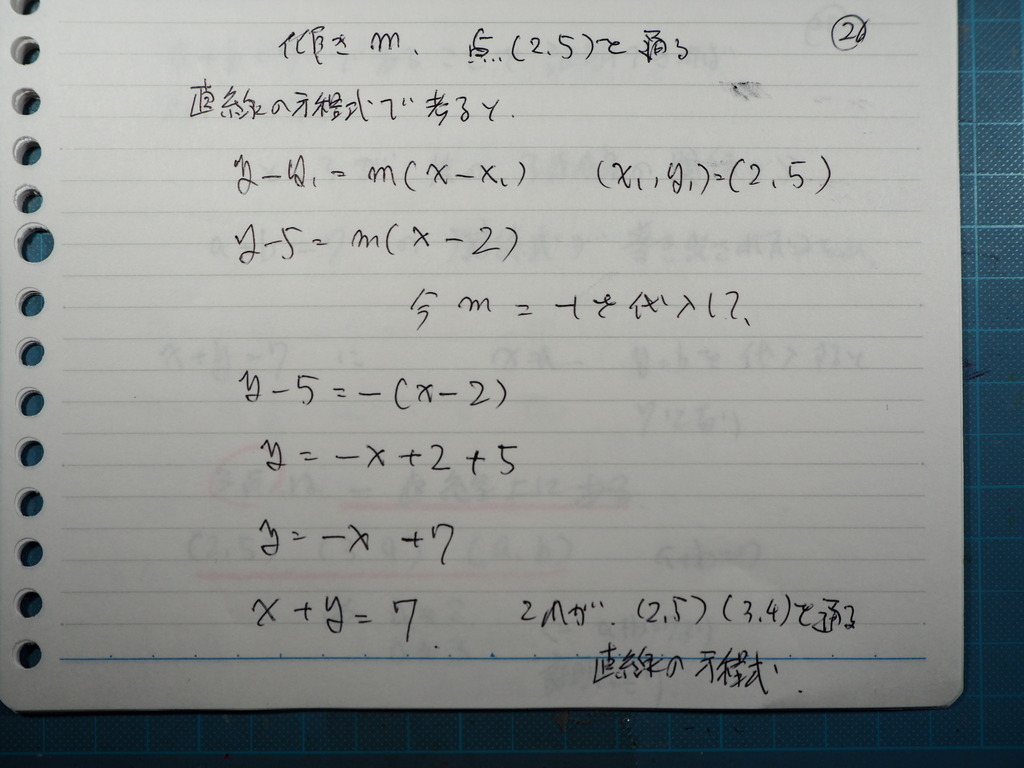 傾き m、 点(2,5)を通る
②
直線の方程式で考ると、
y-y₁=m(x-x₁) (x₁,y₁)=(2,5)
y-5=m(x-2)
今 m = -1を代入して、
y-5=-(x-2)
y=-x+2+5
y=-x+7
x+y=7 これが、(2,5)(3,4)を通る
直線の方程式、